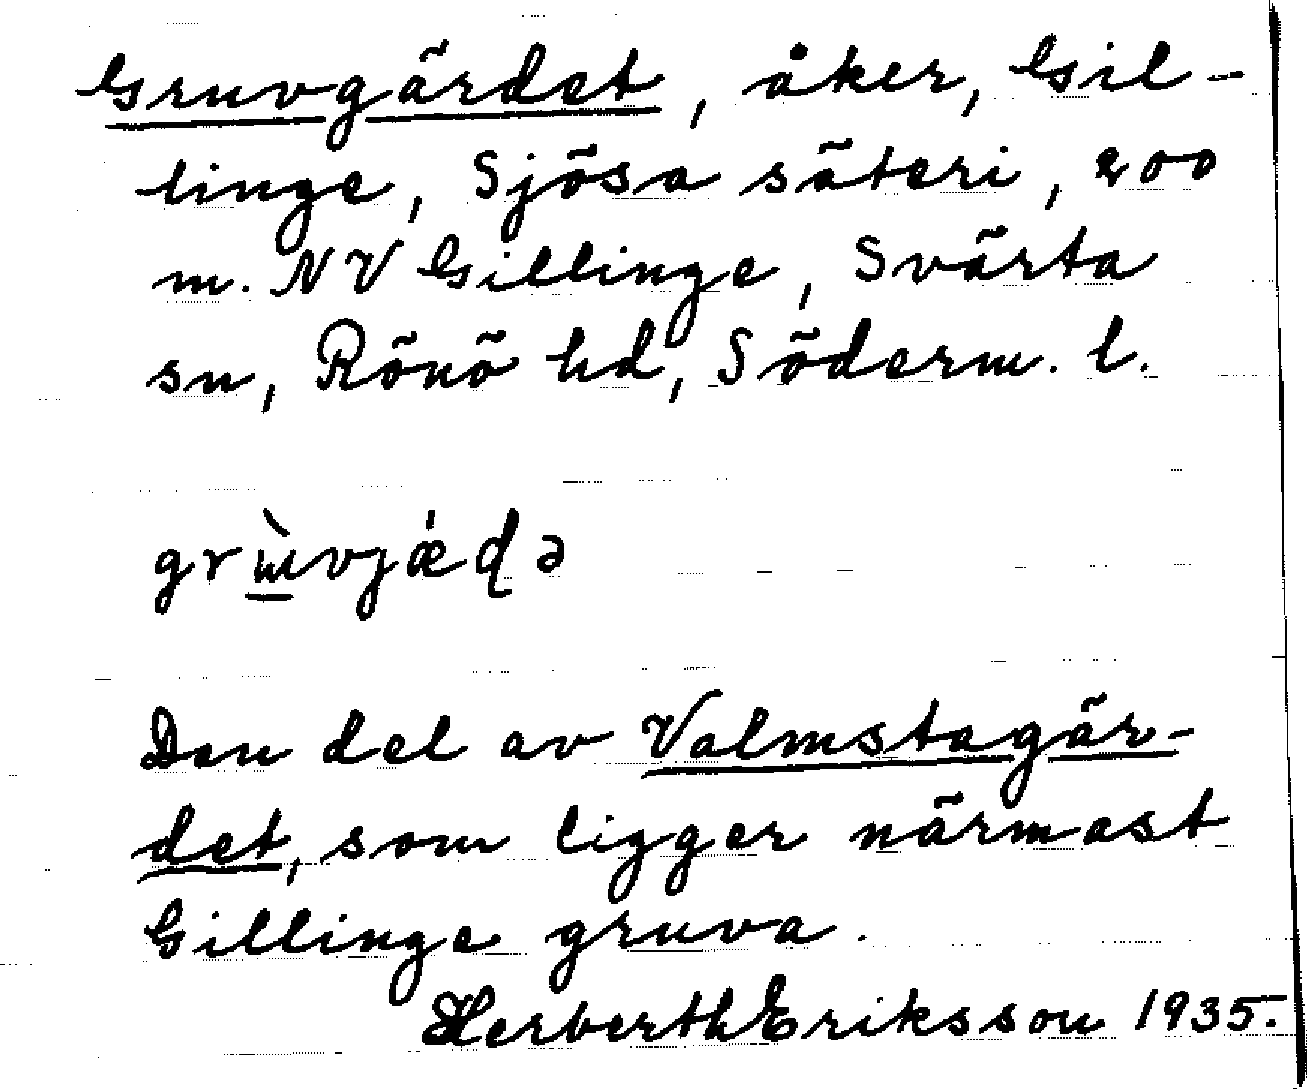 Gruvgärdet, åker, Gil-
linge, Sjösa säteri, 200
m. NV Gillinge, Svärta
sn, Rönö hd, Söderm. l.
grɯ̀vjǽɖə
Den del av Valmstagär-
det, som ligger närmast
Gillinge gruva.
Herberth Eriksson 1935.